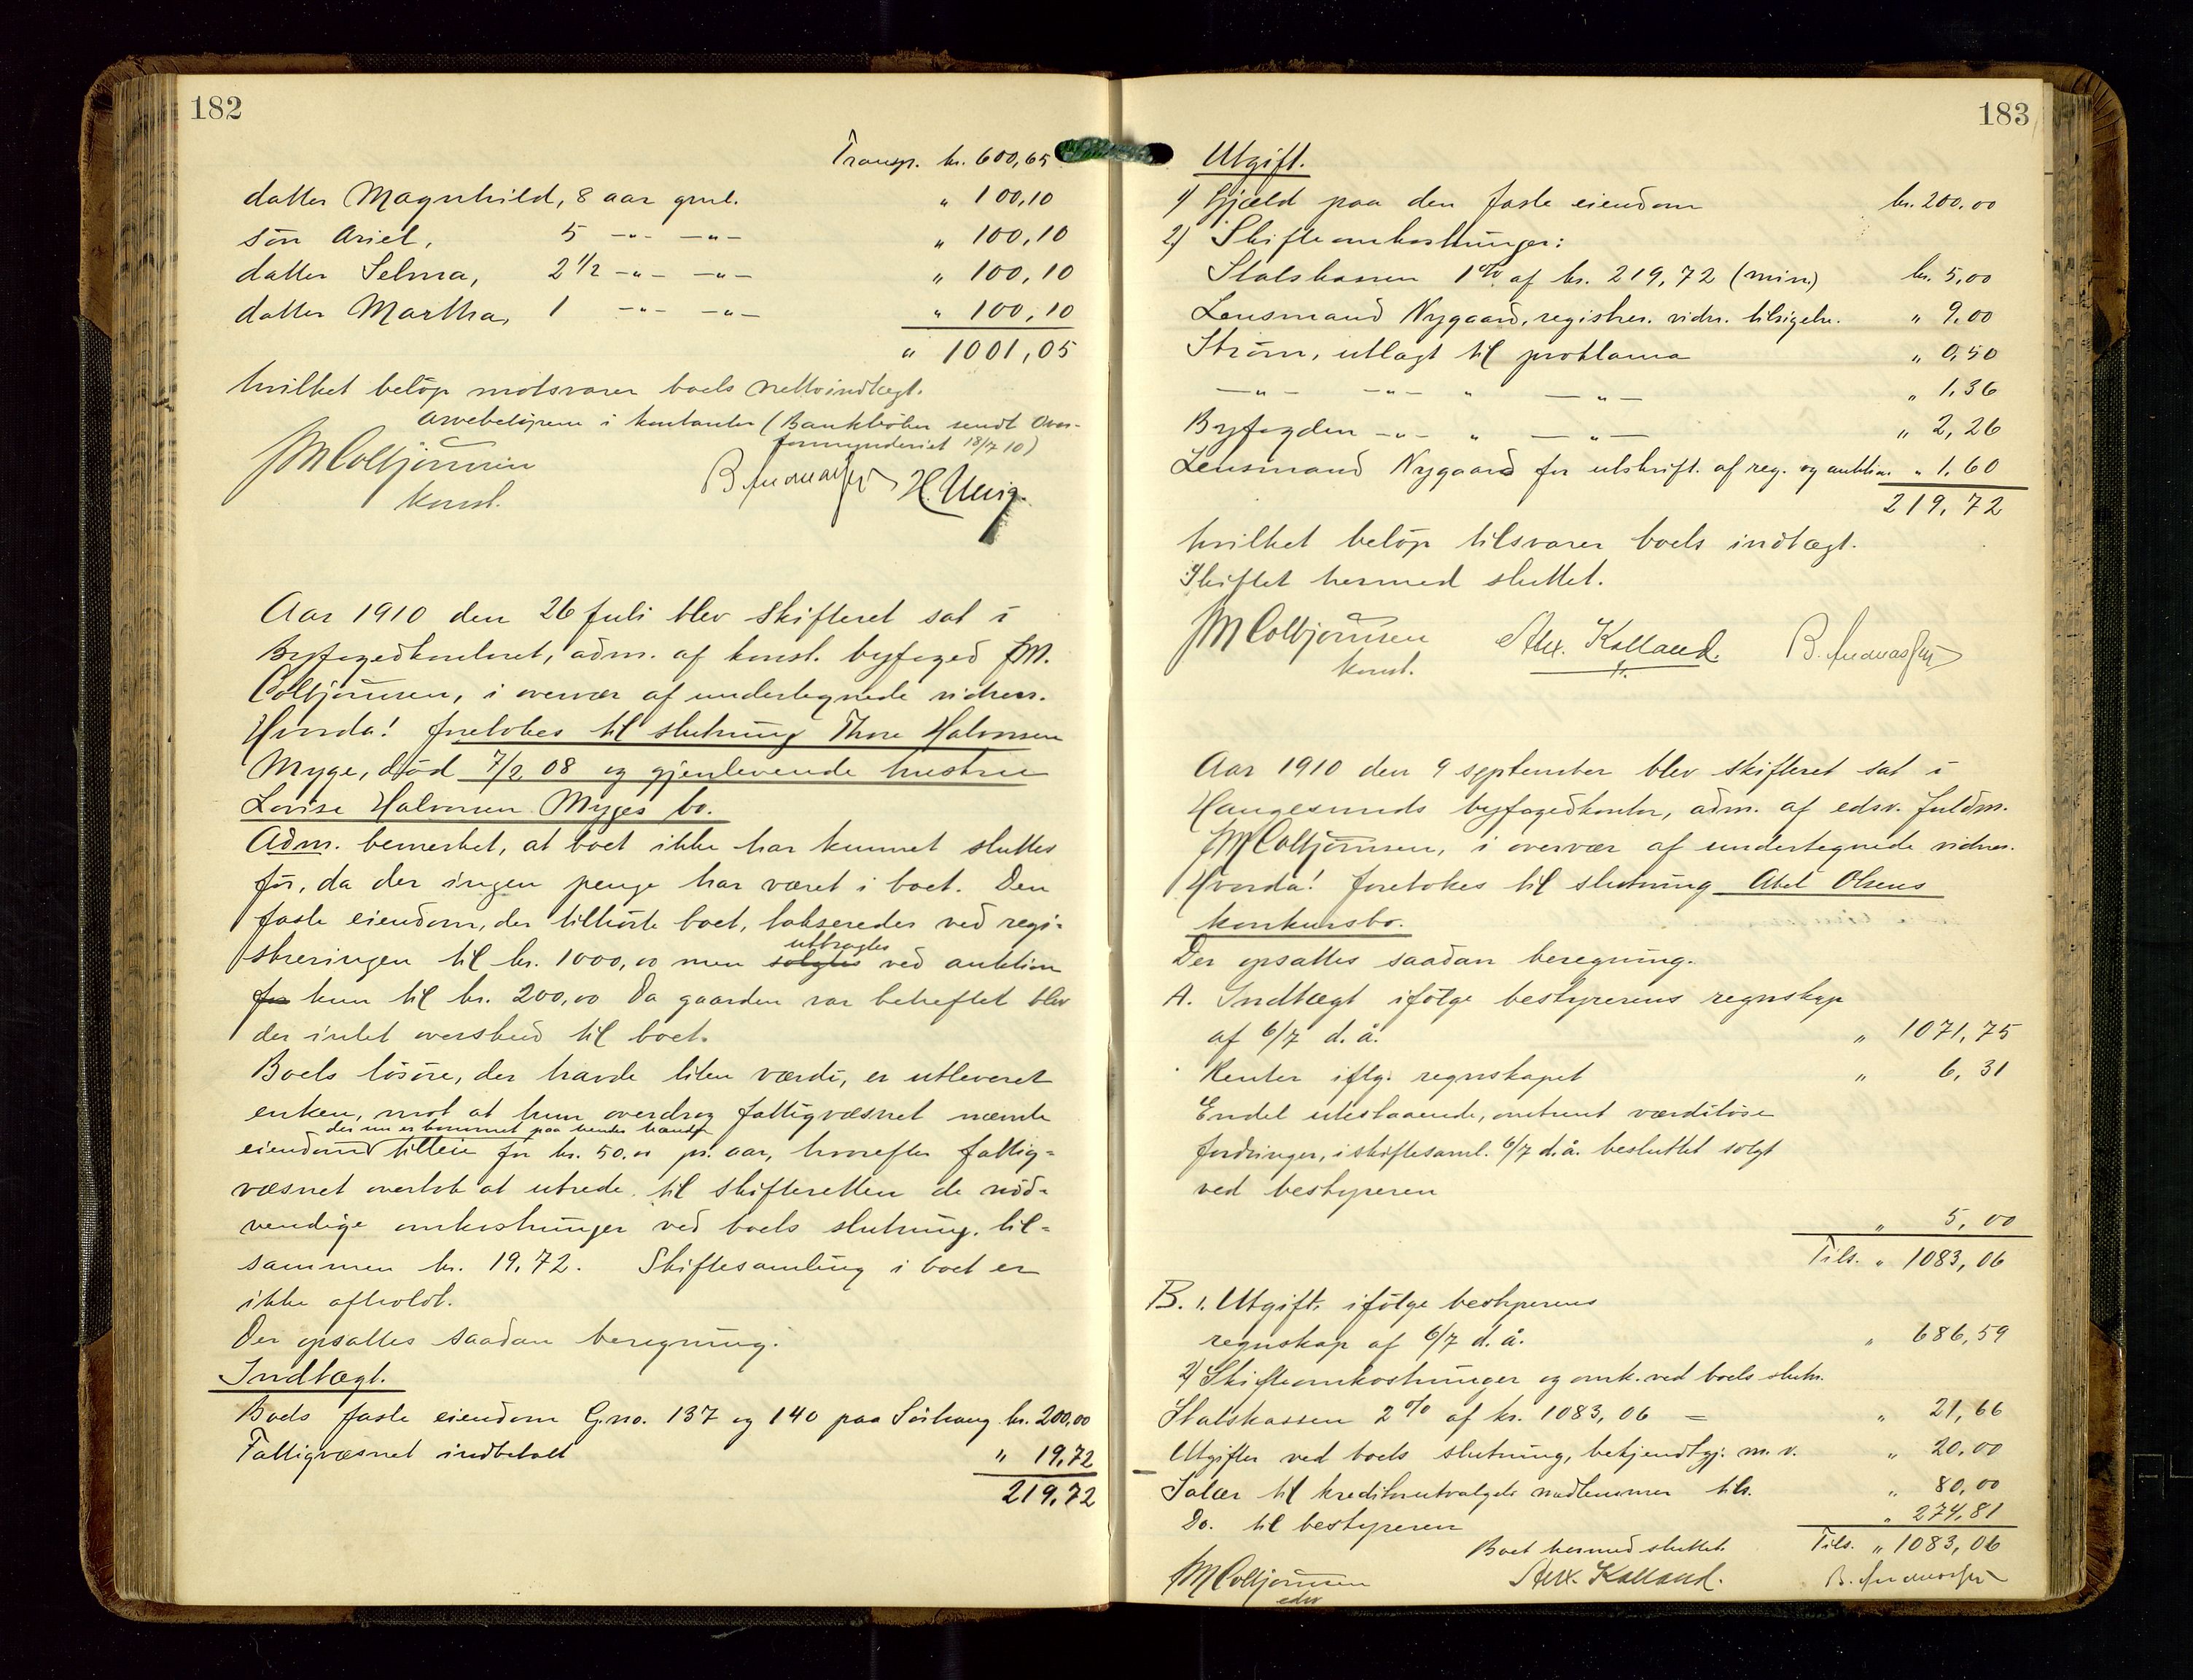 182
Transp. kr. 600,65
datter Magnhild, 8 aar gml. " 100,10
søn Ariel, 5 -"- -"- " 100,10
datter Selma, 2 1/2 -"- -"- " 100,10
datter Martha, 1 -"- -"- " 100,10
" 1001,05
hvilket beløp motsvarer boets nettoindtægt.
Arvebeløpene i kontanter (Bankbøker sendt Over-
formynderiet 18/7 10)
JM Colbjørnsen
konst.
B. Andreassen H.
Aar 1910 den 26 juli blev skifteret sat i
Byfogedkontoret, adm. af konst. byfoged JM.
Colbjørnsen, i overvær af undertegnede vidner.
Hvorda! foretokes til slutning Thore Halvorsen
Myge, død 7/2 08 og gjenlevende hustru
Lovise Halvorsen Myges bo.
Adm. bemerket, at boet ikke har kunnet sluttes
før, da der ingen penge har været i boet. Den
faste eiendom, der tilhørte boet, takseredes ved regi-
streringen til kr. 1000,00 men solgtes utbragtes ved auktion
for kun til kr. 200,00 Da gaarden var beheftet blev
der intet overskud til boet.
Boets løsøre, der havde liten værdi, er utleveret
enken, mot at hun overdrog fattigvæsnet nævnte
der nu er kommet paa hendes hænder
eiendoms tilleie for kr. 50.00 pr. aar, hvorefter fattig-
væsnet overtok at utrede til skifteretten de nød-
vendige omkostninger ved boets slutning, til-
sammen kr. 19,72. Skiftesamling i boet er
ikke afholdt.
Der opsattes saadan beregning:
Indtægt.
Boets faste eiendom G.no. 137 og 140 paa Sørhaug kr. 200,00
Fattigvæsnet indbetalt " 19,72
219,72
183
Utgift.
1) Gjæld paa den faste eiendom kr. 200,00
2) Skifteomkostninger:
Statskassen 1% af kr. 219,72 (min) kr. 5,00
Lensmand Nygaard, registrer. vidn. tilsigelse. " 9,00
Strøm, utlagt til proklama " 0,50
-"- -"- " -"- " 1,36
Byfogden -"- " -"- " 2,26
Lensmand Nygaard for utskrift. af reg. og auktion " 1,60
219,72
hvilket beløp tilsvarer boets indtægt.
Skiftet hermed sluttet.
JM Colbjørnsen
konst.
Alex. Kolland. B. Andreassen
Aar 1910 den 9 september blev skifteret sat i
Haugesunds byfogedkontor, adm. af edsv. fuldm.
JM Colbjørnsen, i overvær af undertegnede vidner.
Hvorda! foretokes til slutning Abel Olsens
konkursbo.
Der opsattes saadan beregning.
A. Indtægt ifølge bestyrerens regnskap
af 6/7 d. å. " 1071,75
Renter iflg. regnskapet " 6,31
Endel utestaaende, omtrent værdiløse
fordringer, i skiftesaml. 6/7 d.å. besluttet solgt
ved bestyreren
" 5,00
Tils. " 1083,06
B. 1. Utgift, ifølge bestyrerens
regnskap af 6/7 d. å. " 686,59
2) Skifteomkostninger og omk. ved boets slutn.
Statskassen 2% af kr. 1083,06 = " 21,66
Utgifter ved boets slutning, bekjendtgj. m. v. " 20,00
Salær til kreditorutvalgets medlemmer tils. " 80,00
Do. til bestyreren " 274,81
Boet hermed sluttet. Tils. " 1083,06
JM Colbjørnsen
edsv
Alex. Kolland. B. Andreassen